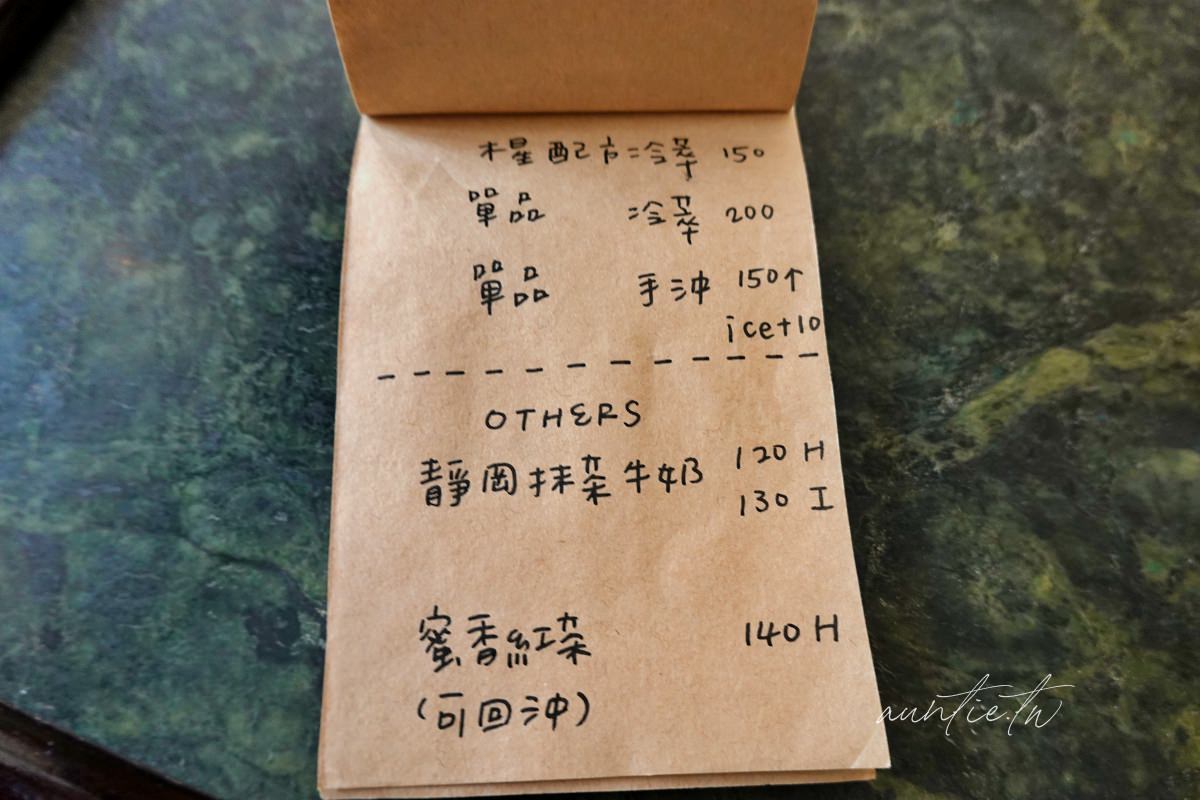 木星配方冷萃 150
單品 冷萃 200
單品 手沖 150↑
ice+10
OTHERS
靜岡抹茶牛奶 120 H
130 I
蜜香紅茶 140 H
(可回沖)
auntie.tw